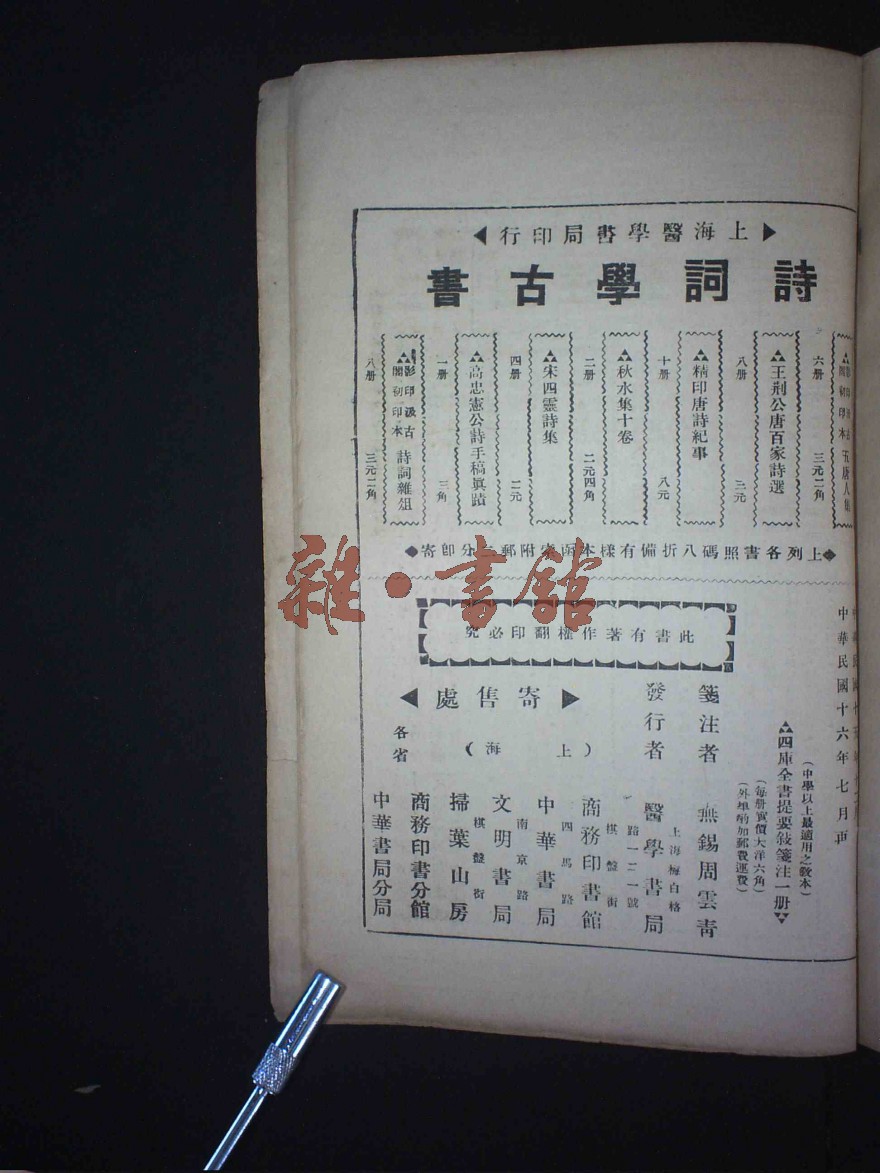 上海醫學書局印行
詩詞學古書
五唐人集
六册
三元二角
王荆公唐百家詩選
八册
三元
精印唐詩紀事
十册
八元
秋水集十卷
二册
二元四角
宋四靈詩集
四册
二元
高忠憲公詩手稿眞蹟
一册
三角
影印汲古閣初印本 詩詞雜俎
八册
三元二角
上列各書照碼八折備有樣本函索附郵二分卽寄
雜·書館
此書有著作權翻印必究
中華民國十六年七月再
(中學以上最適用之敎本)
四庫全書提要敍箋注一册
(每册實價大洋六角)
(外埠酌加郵費運費)
箋注者 無錫周雲青
發行者 醫學書局
上海梅白格路一二一號
寄售處
(上海)
棋盤街 商務印書館
四馬路 中華書局
南京路 文明書局
棋盤街 掃葉山房
各省
商務印書分館
中華書局分局